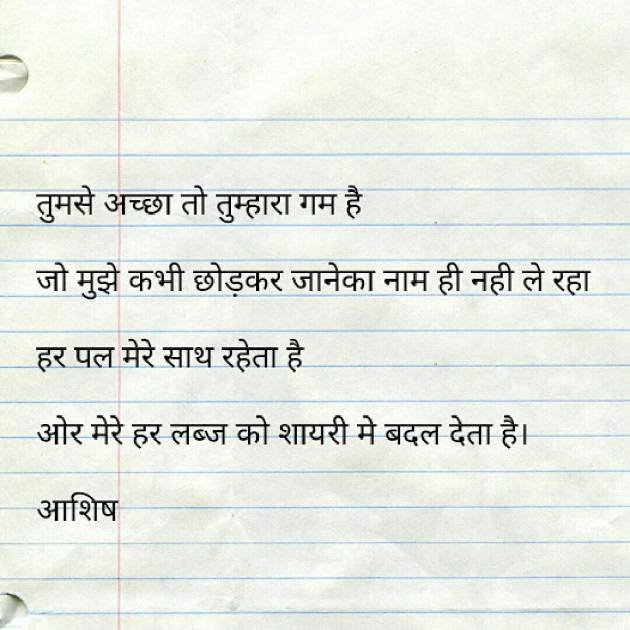 तुमसे अच्छा तो तुम्हारा गम है
जो मुझे कभी छोड़कर जानेका नाम ही नही ले रहा
हर पल मेरे साथ रहेता है
ओर मेरे हर लब्ज को शायरी मे बदल देता है।
आशिष